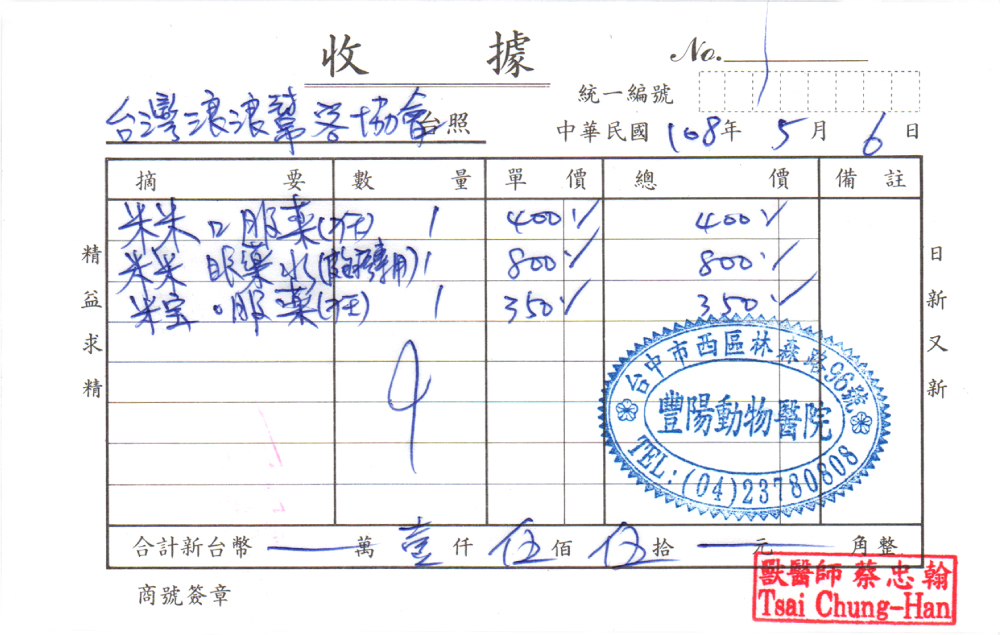 收 據
No.
統一編號
台灣浪浪幫客協會台照
中華民國 108年 5月 6日
摘 要 數 量 單 價 總 價 備 註
米米 口服藥(打) 1 400 400
米米 眼藥水( 專用) 1 800 800
米宝 口服藥(打) 1 350 350
精益求精
日新又新
台中市西區林森路96號
豐陽動物醫院
TEL:(04)23780808
合計新台幣 萬 壹 仟 伍 佰 伍 拾 元 角整
獸醫師 蔡忠翰
Tsai Chung-Han
商號簽章